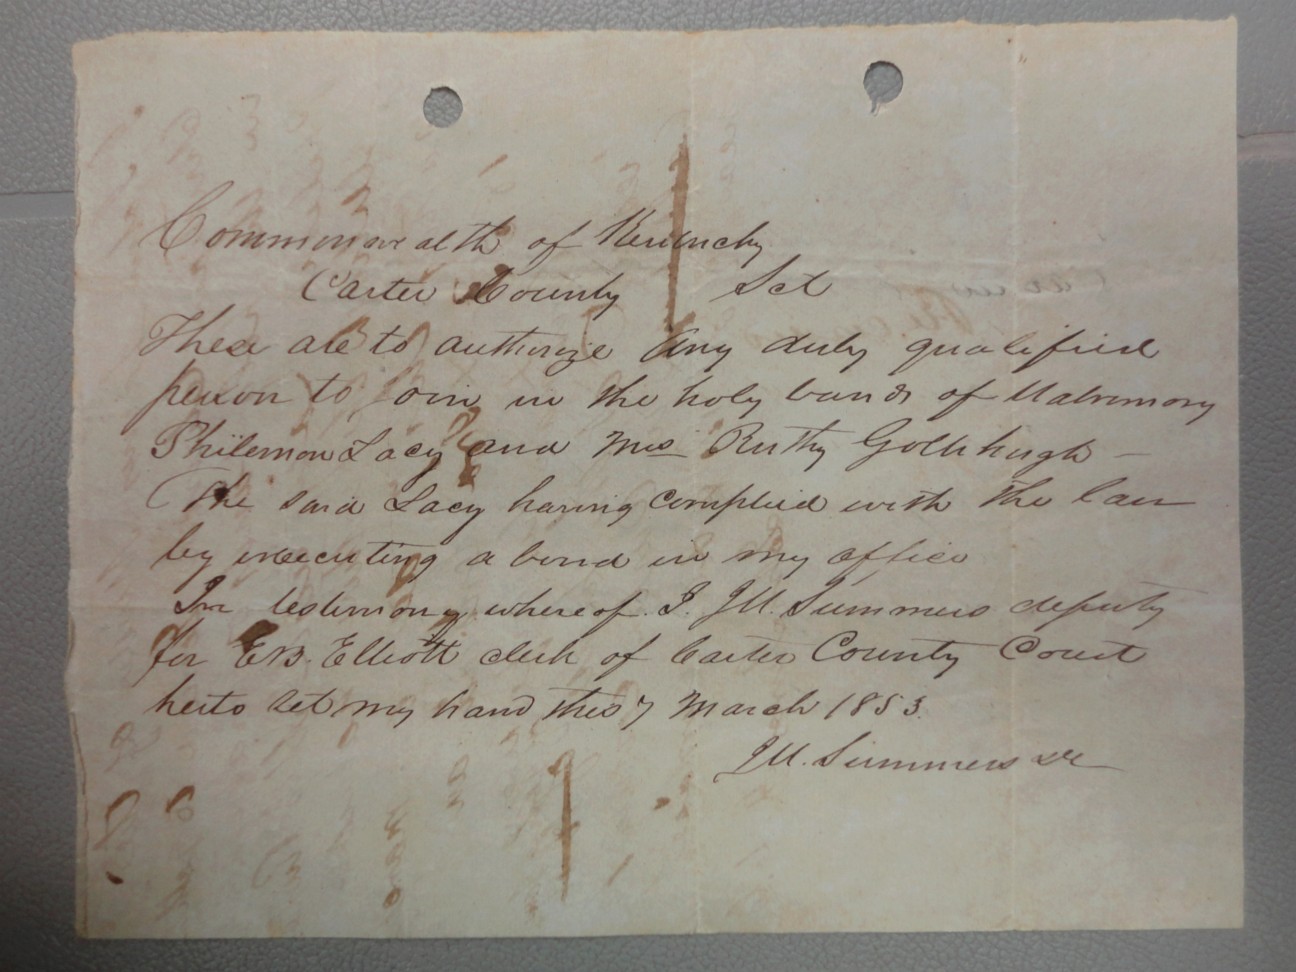 Commonwealth of Kentucky
Carter County Sct
These are to authorize any duly qualified
person to join in the holy bands of Matrimony
Philemon Lacy and Mrs Ruthy Goldhugh —
The said Lacy having complied with the law
by executing a bond in my office
In testimony whereof I. J M. Summers deputy
for E B. Elliott clerk of Carter County Court
herto set my hand this 7 March 1853.
J M. Summers DC